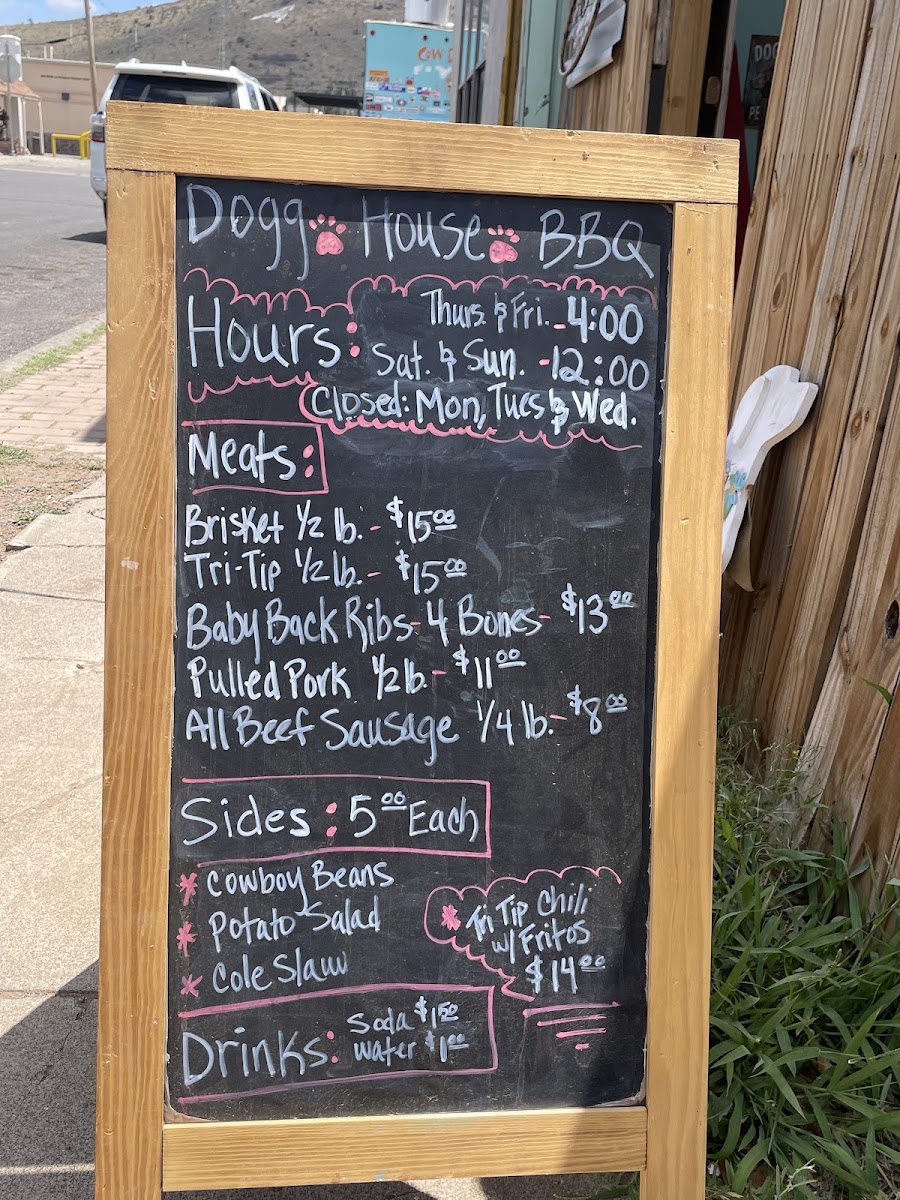 COW
DOG
PE
Dogg House BBQ
Hours: Thurs. & Fri. - 4:00
Sat. & Sun. - 12:00
Closed: Mon, Tues & Wed.
Meats:
Brisket 1/2 lb. - $15.00
Tri-Tip 1/2 lb. - $15.00
Baby Back Ribs - 4 Bones - $13.00
Pulled Pork 1/2 lb. - $11.00
All Beef Sausage 1/4 lb. - $8.00
Sides: 5.00 Each
* Cowboy Beans
* Potato Salad
* Cole Slaw
* Tri Tip Chili
w/ Fritos
$14.00
Drinks: Soda $1.50
Water $1.00